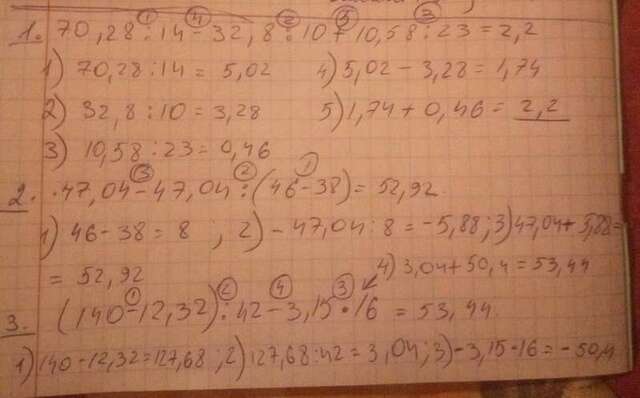 1. 70,28:14-32,8:10+10,58:23=2,2
1) 70,28:14= 5,02 4) 5,02-3,28=1,74
2) 32,8:10=3,28 5) 1,74+0,46=2,2
3) 10,58:23=0,46
2. 47,04-47,04:(46-38)=52,92
1) 46-38=8; 2) -47,04:8=-5,88; 3) 47,04+5,88=
= 52,92 4) 3,04+50,4=53,44
3. (140-12,32):42-3,15·16=53,44
1) 140-12,32=127,68; 2) 127,68:42=3,04; 3) -3,15·16=-50,4